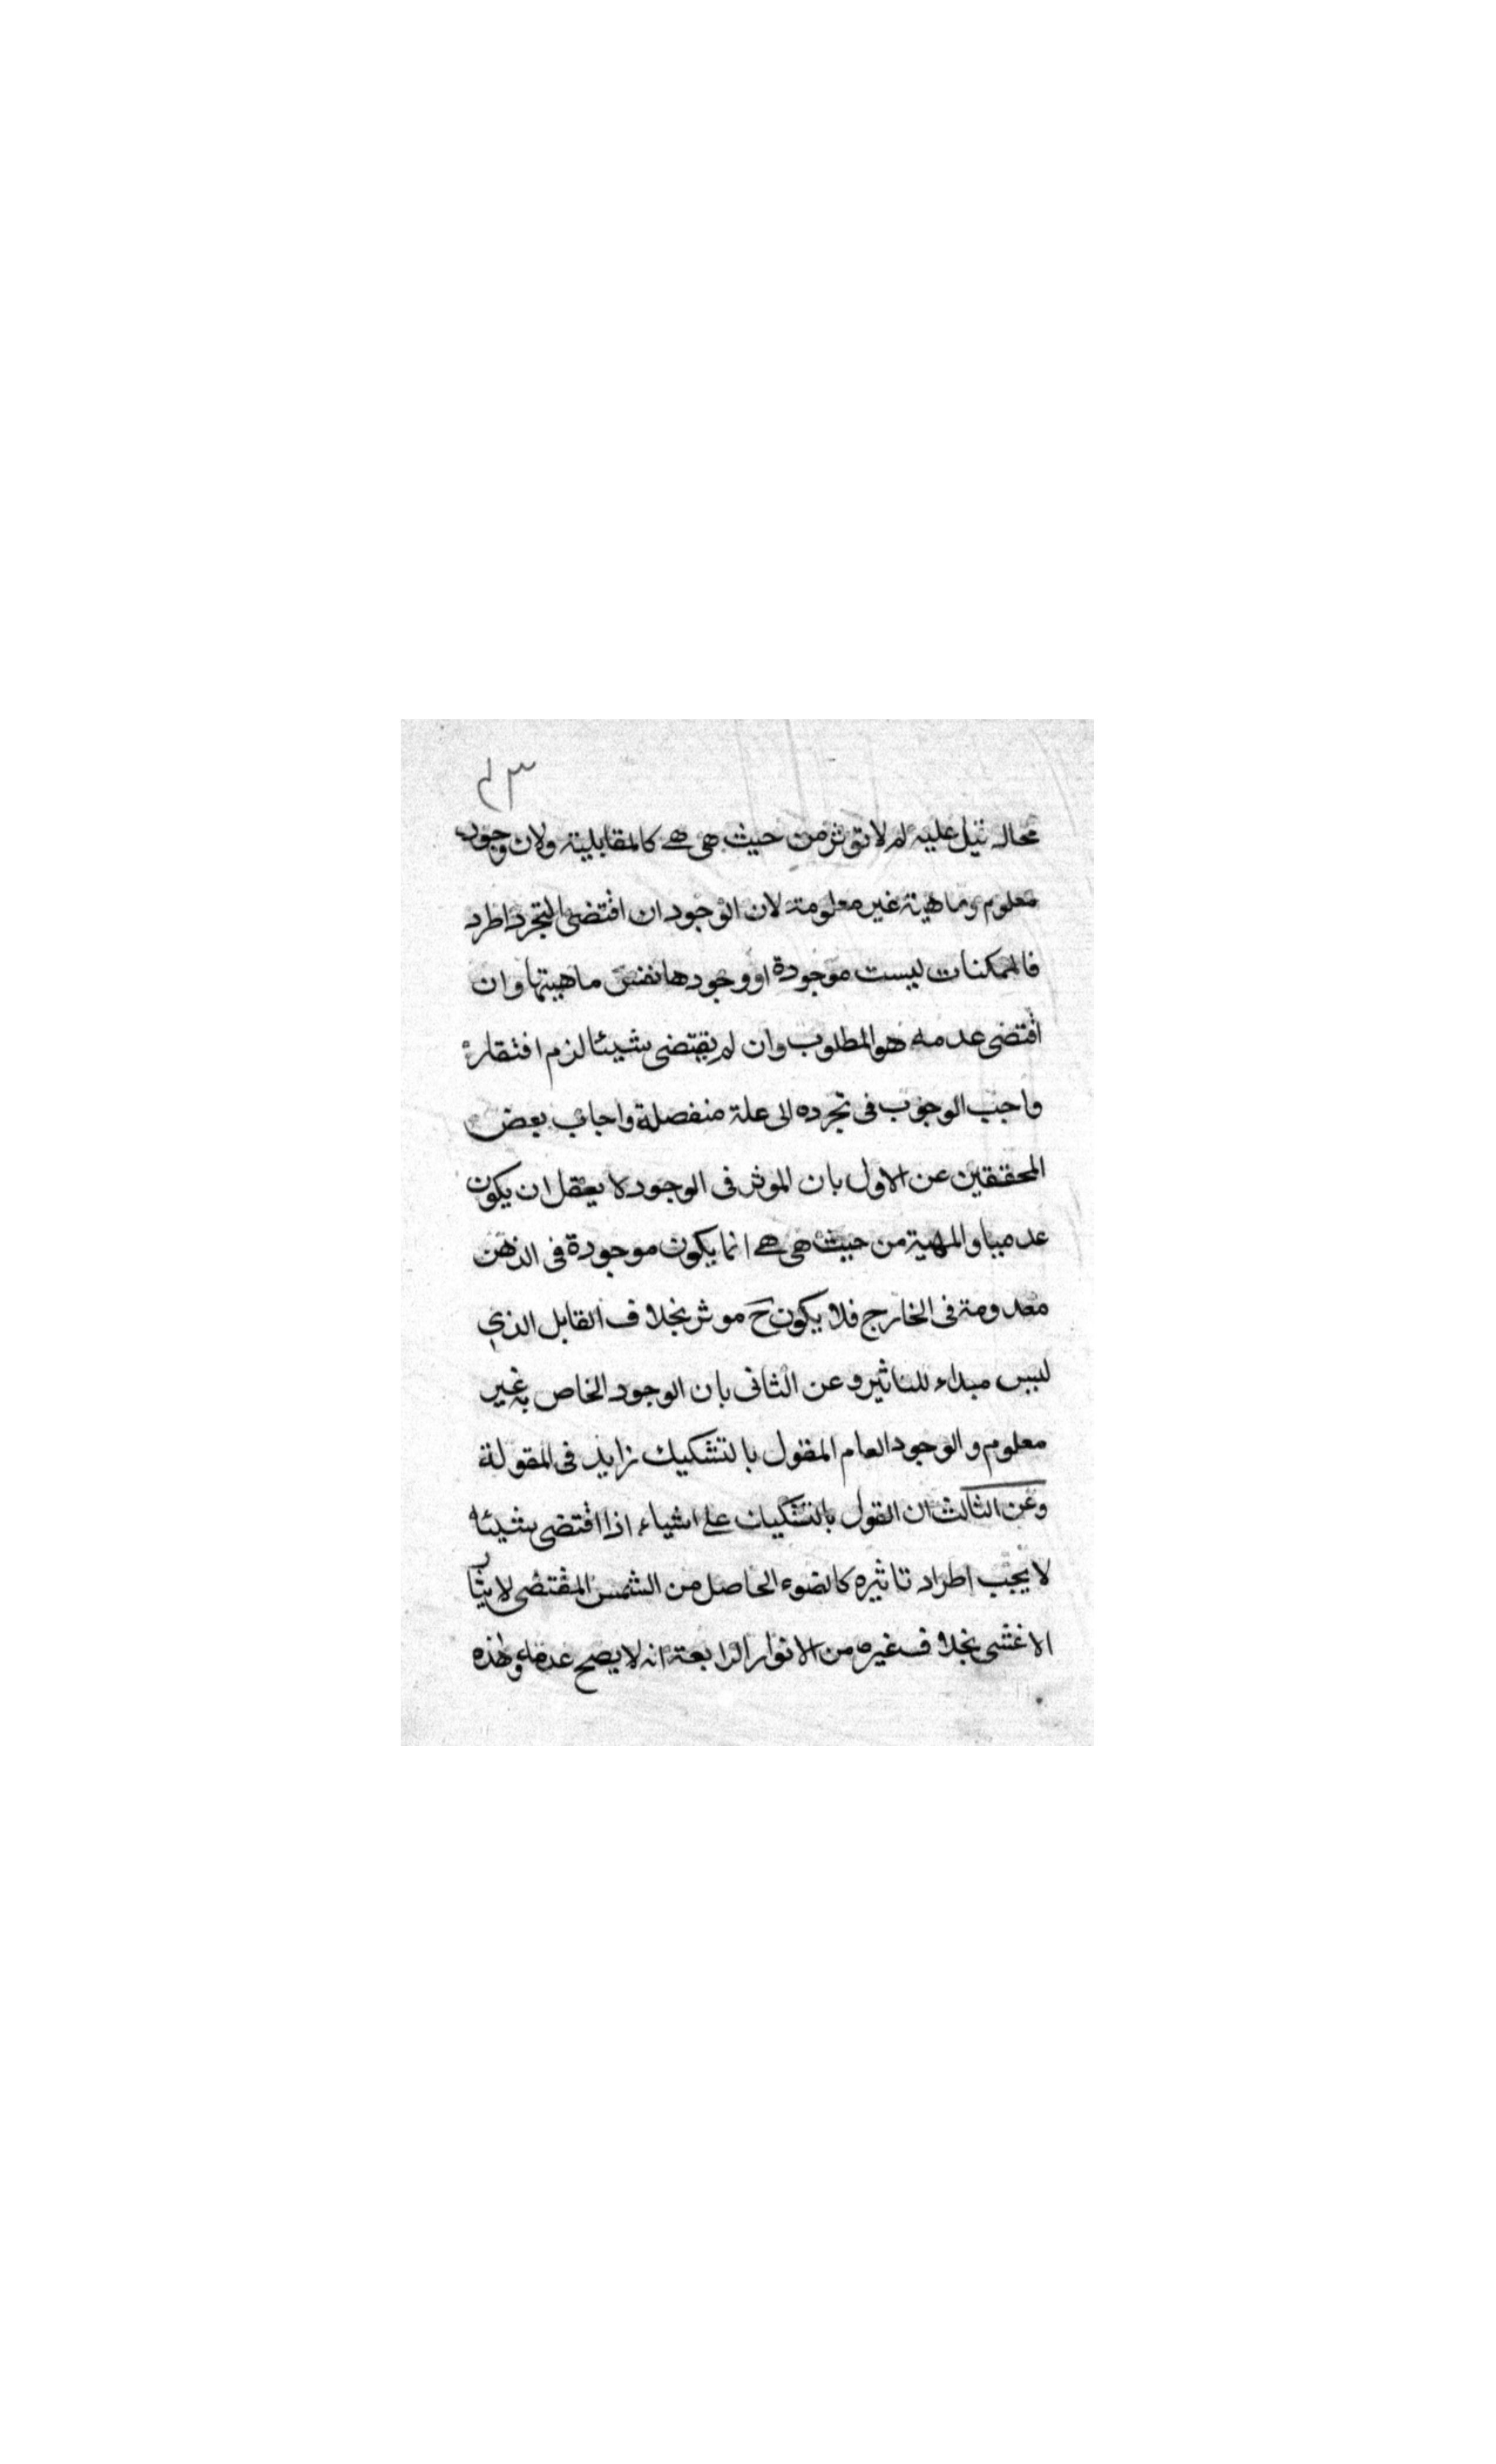 ٤٣
محاله قيل عليه لم لا تؤثر من حيث هي هے كالمقابلية ولان وجوده
معلوم وماهية غير معلومة لان الوجود ان اقتضى التجرد اطرد
فالممكنات ليست موجودة او وجودها نفس ماهيتها وان
اقتضى عدمه هو المطلوب وان لم يقتضى شيئا لزم افتقار
واجب الوجوب فى تجرده الى علة منفصلة واجاب بعض
المحققين عن الاول بان الموثر فى الوجود لا يعقل ان يكون
عدميا والمهية من حيث هي هے انما يكون موجودة فى الذهن
معدومة فى الخارج فلا يكون ح موثر بخلاف القابل الذي
ليس مبداء للتاثير وعن الثانى بان الوجود الخاص به غير
معلوم والوجود العام المقول بالتشكيك زايد فى المقولة
وعن الثالث ان القول بالتشكيك على اشياء اذا اقتضى شيئا
لا يجب اطراد تاثيره كالضوء الحاصل من الشمس المقتضى لابثار
الاغشى بخلاف غيره من الانوار الرابعة انه لا يصح عدمه ولهذه